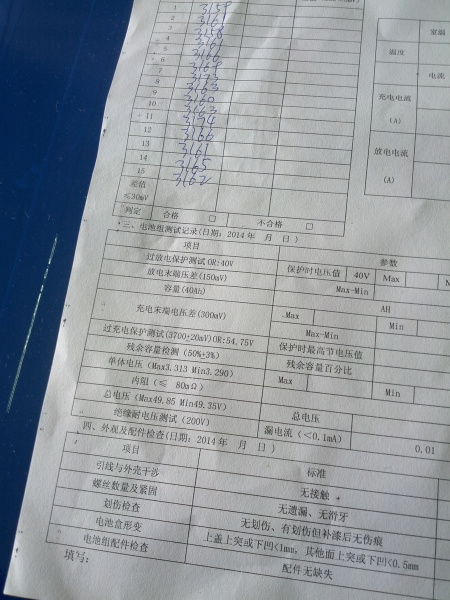 1 3159
2 3161
3 3158
4
5
6
7
8
9
10
11
12 3166
13 3161
14 3165
15 3162
差值
≤30mV
判定 合格 □ 不合格 □
室温
温度
电流
充电电流
(A)
放电电流
(A)
三、电池组测试记录(日期：2014年 月 日)
项目 参数
过放电保护测试OR:40V 保护时电压值 40V Max
放电末端压差(150mV) Max-Min
容量(40Ah) AH
充电末端压差(300mV) .Max Min
Max-Min
过充电保护测试(3700±20mV)OR:54.75V 保护时最高节电压值
残余容量检测（50%±3%） 残余容量百分比
单体电压（Max3.313 Min3.290） Max Min
内阻（≤ 80mΩ）
总电压（Max49.85 Min49.35V） 总电压
绝缘耐电压测试（200V） 漏电流（<0.1mA） 0.01
四、外观及配件检查(日期：2014年 月 日)
项目 标准
引线与外壳干涉 无接触
螺丝数量及紧固 无遗漏、无滑牙
划伤检查 无划伤、有划伤但补漆后无伤痕
电池盒形变 上盖上突或下凹<1mm，其他面上突或下凹<0.5mm
电池组配件检查 配件无缺失
填写：